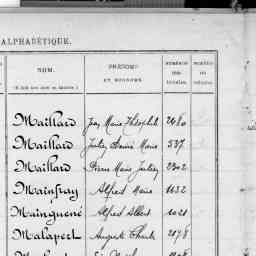 ALPHABÉTIQUE.
NOM. PRÉNOMS ET SURNOMS. NUMÉROS NUMÉROS
Maillard Jean Marie Théophile 2480
Maillard Julien Louis Marie 537
Maillard Pierre Marie Julien 2302
Mainfray Alfred Marie 1132
Mainguené Alfred Albert 1021
Malapert Auguste Charles 2178